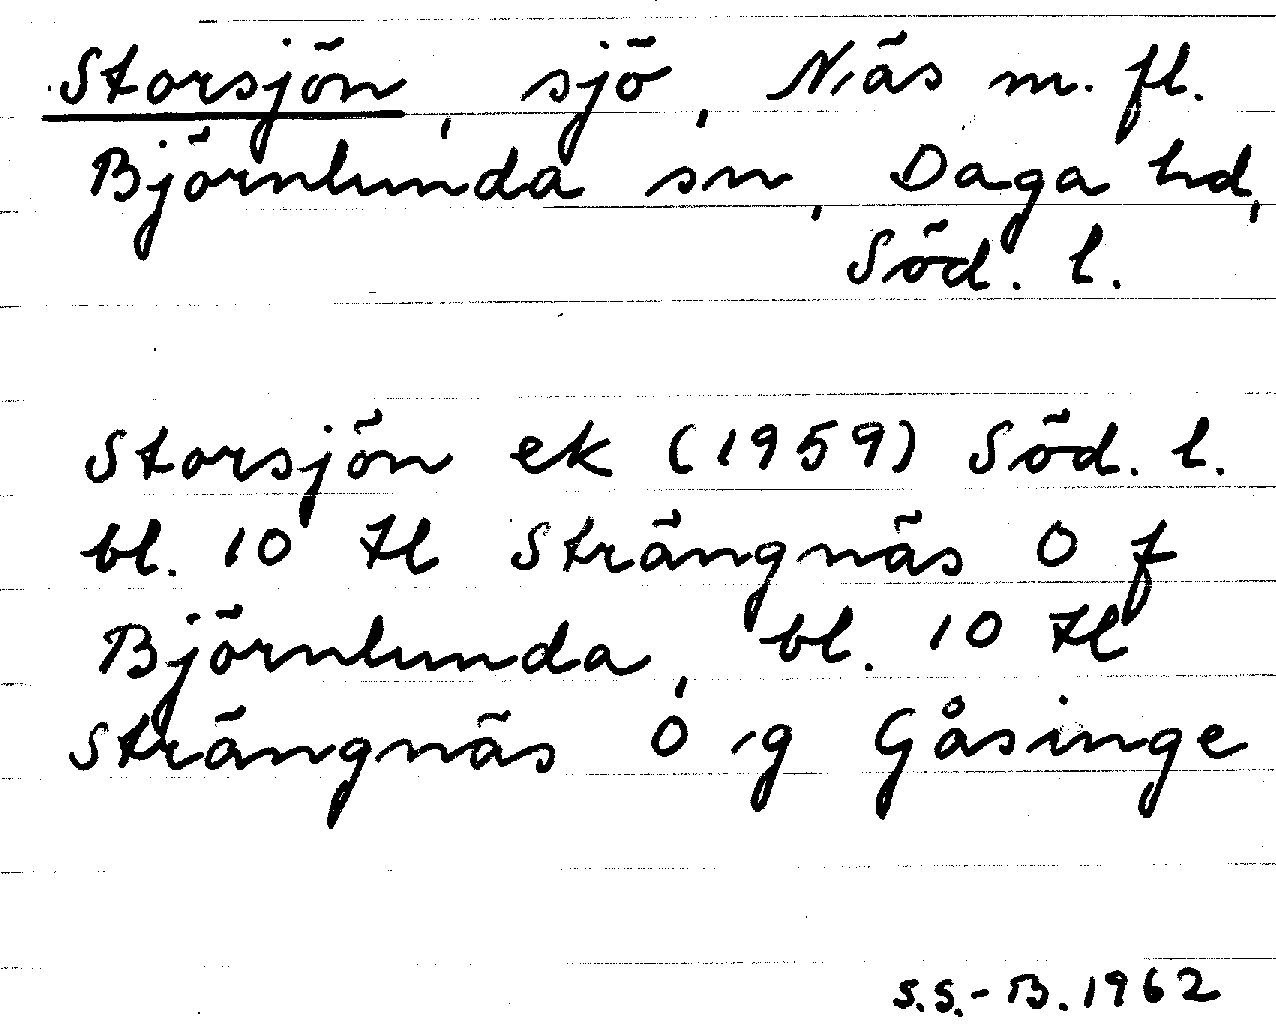 Storsjön, sjö, Näs m. fl.
Björnlunda sn, Daga hd,
Söd. l.
Storsjön ek (1959) Söd. l.
bl. 10 H Strängnäs 0 f
Björnlunda, bl. 10 H
Strängnäs 0 g Gåsinge
S.S.-B. 1962